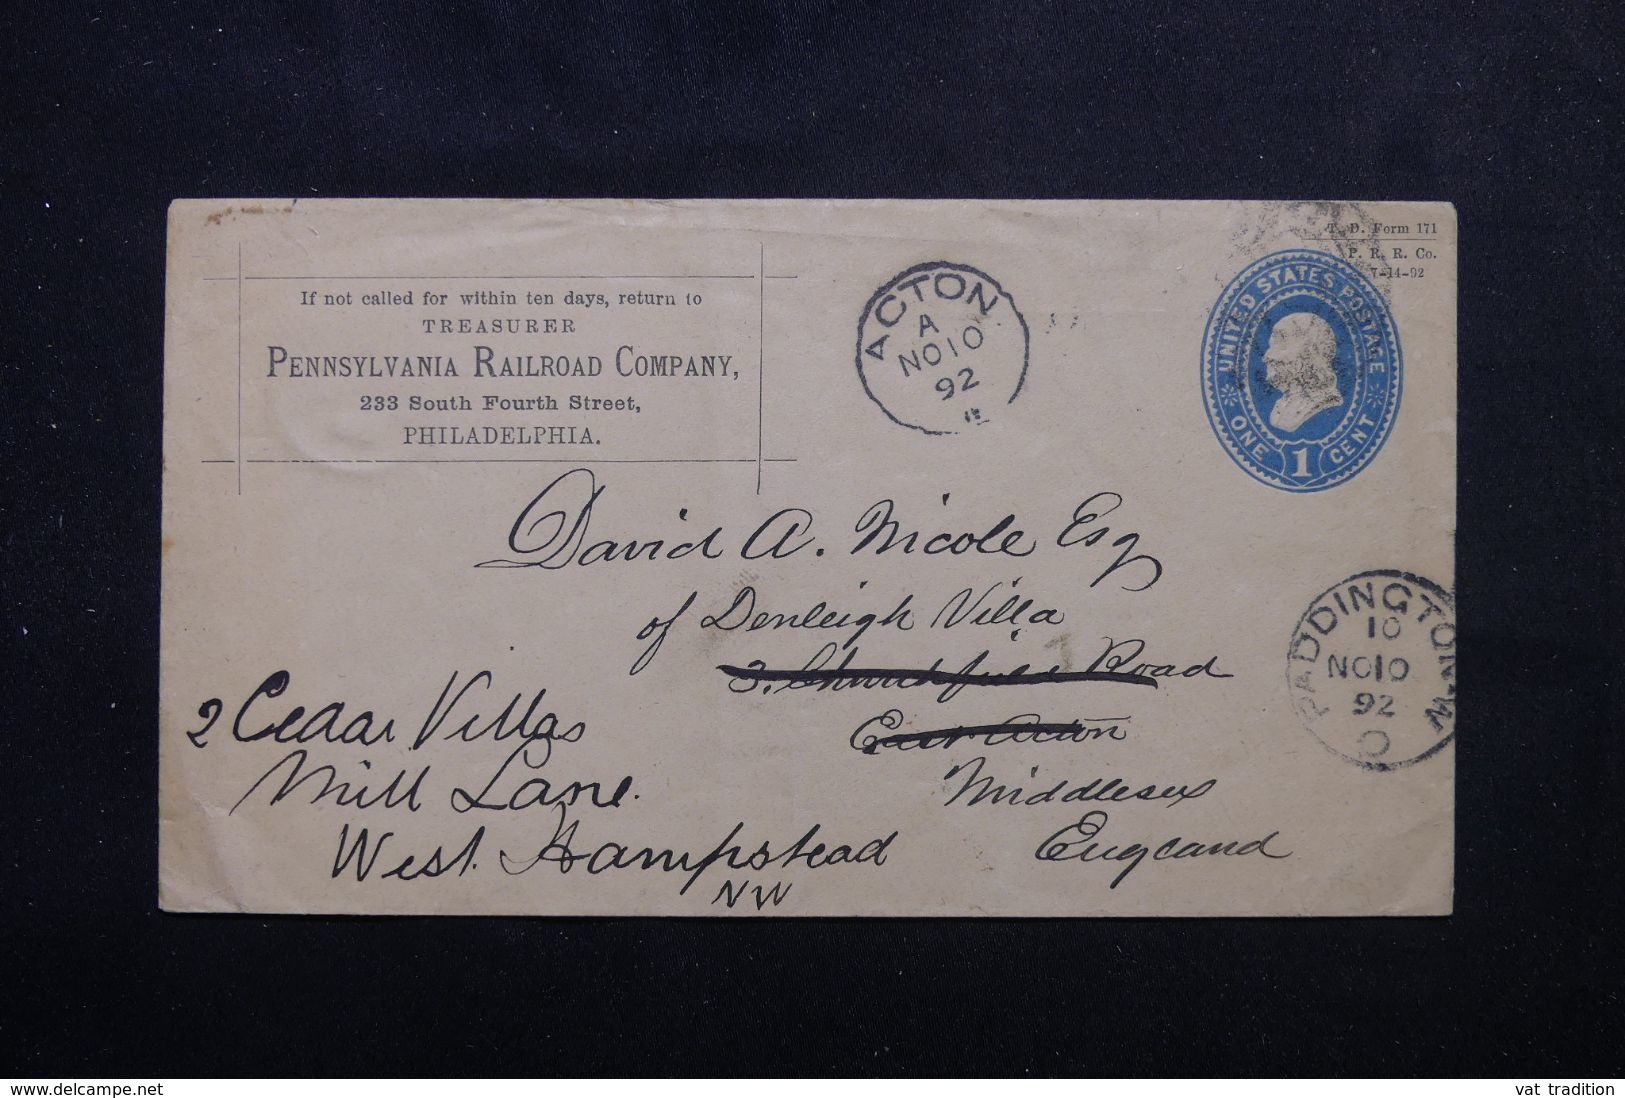 T. D. Form 171
P. R. R. Co.
7-14-92
If not called for within ten days, return to
TREASURER
PENNSYLVANIA RAILROAD COMPANY,
233 South Fourth Street,
PHILADELPHIA.
ACTON
A
NO 10
92
UNITED STATES POSTAGE
ONE 1 CENT
David A. Nicole Esq
of Denleigh Villa
3. Churchfield Road
East Acton
Middlesex
England
PADDINGTON-W
10
NO 10
92
C
2 Cedar Villas
Mill Lane.
West Hampstead
NW
www.delcampe.net
vat_tradition